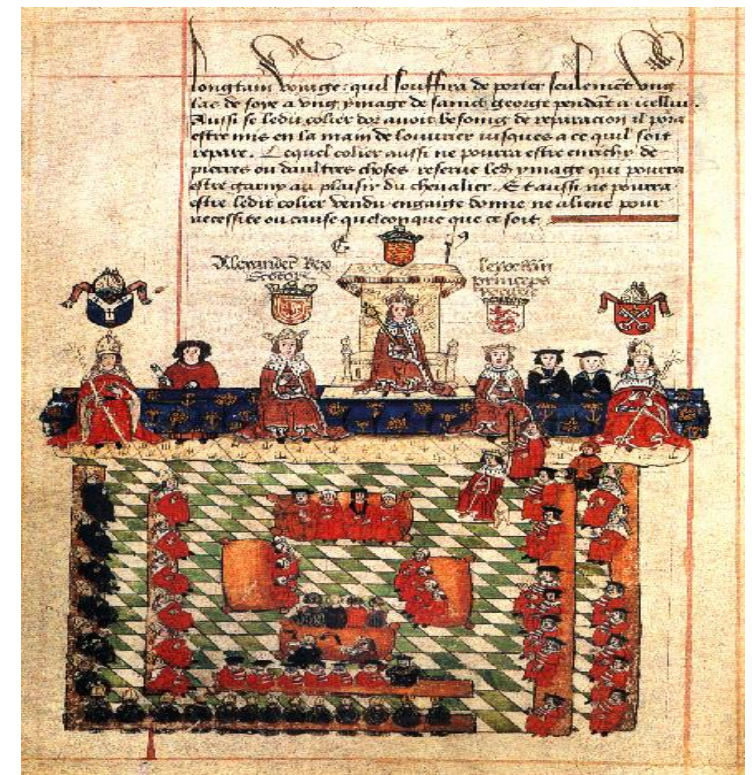 longtain voiage: quil souffira de porter seulemēt ung
las de soye a ung ymage de sainct george pendāt a icellui.
Aussi se ledit colier dor auoit besoing de reparacion il pora
estre mis en la main de louurier iusques a ce quil soit
repare. Lequel colier aussi ne pourra estre enrichy de
pierres ou daultres choses reserue led ymage qui pourra
estre garny au plaisir du cheualier. Et aussi ne pourra
estre ledit colier vendu engaige donne ne aliene pour
necessite ou cause quelconque que ce soit
Alexander Rex
Scotor
princeps